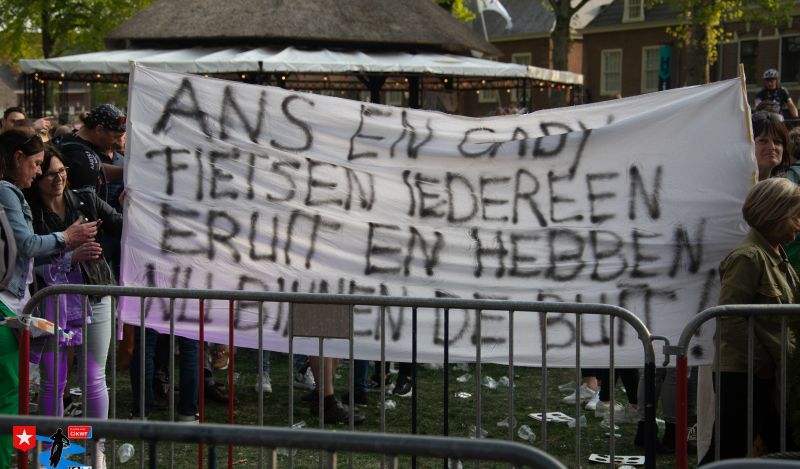 ANS EN GABY
FIETSEN IEDEREEN
ERUIT EN HEBBEN
NU BINNEN DE BUIT!